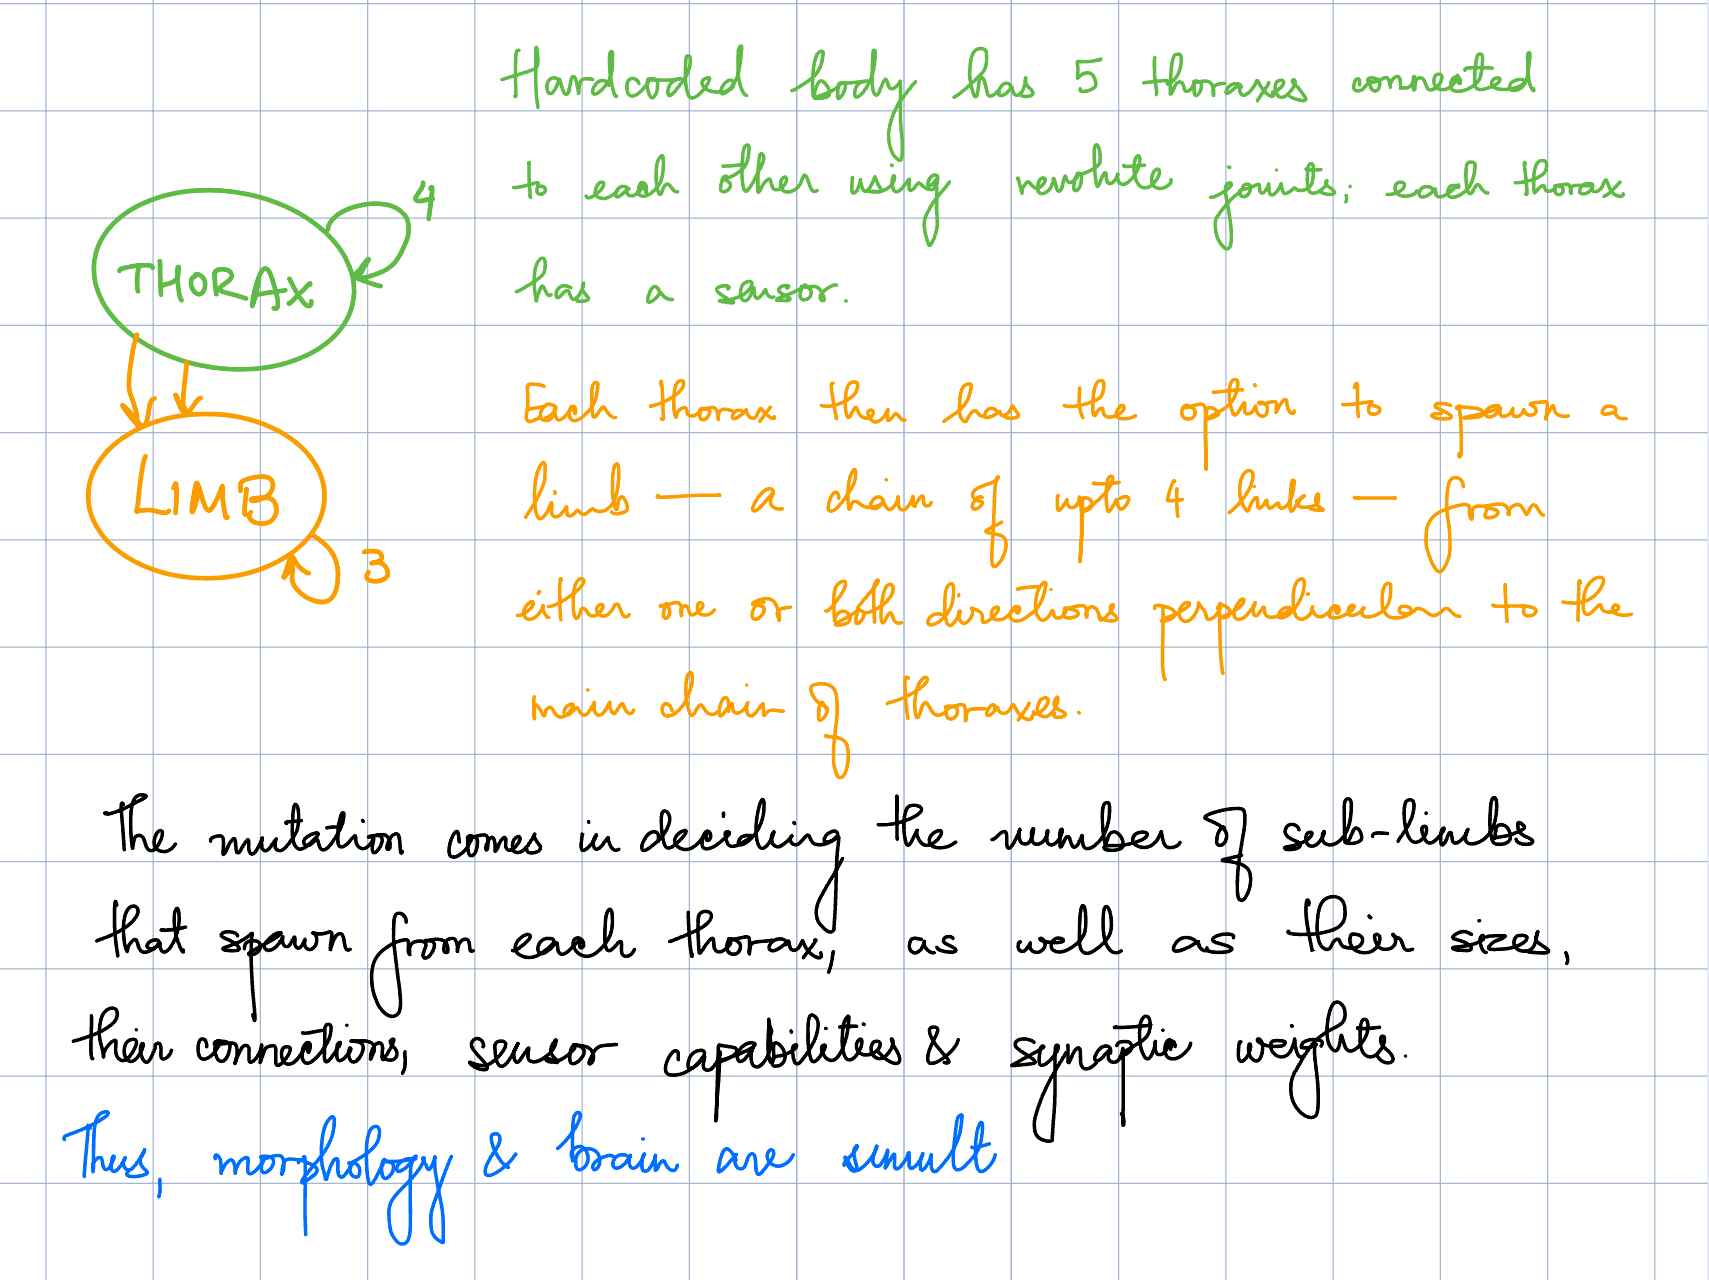 Hardcoded body has 5 thoraxes connected
to each other using revolute joints; each thorax
has a sensor.
4
THORAX
Each thorax then has the option to spawn a
limb — a chain of upto 4 links — from
either one or both directions perpendicular to the
main chain of thoraxes.
LIMB
3
The mutation comes in deciding the number of sub-limbs
that spawn from each thorax, as well as their sizes,
their connections, sensor capabilities & synaptic weights.
Thus, morphology & brain are simult